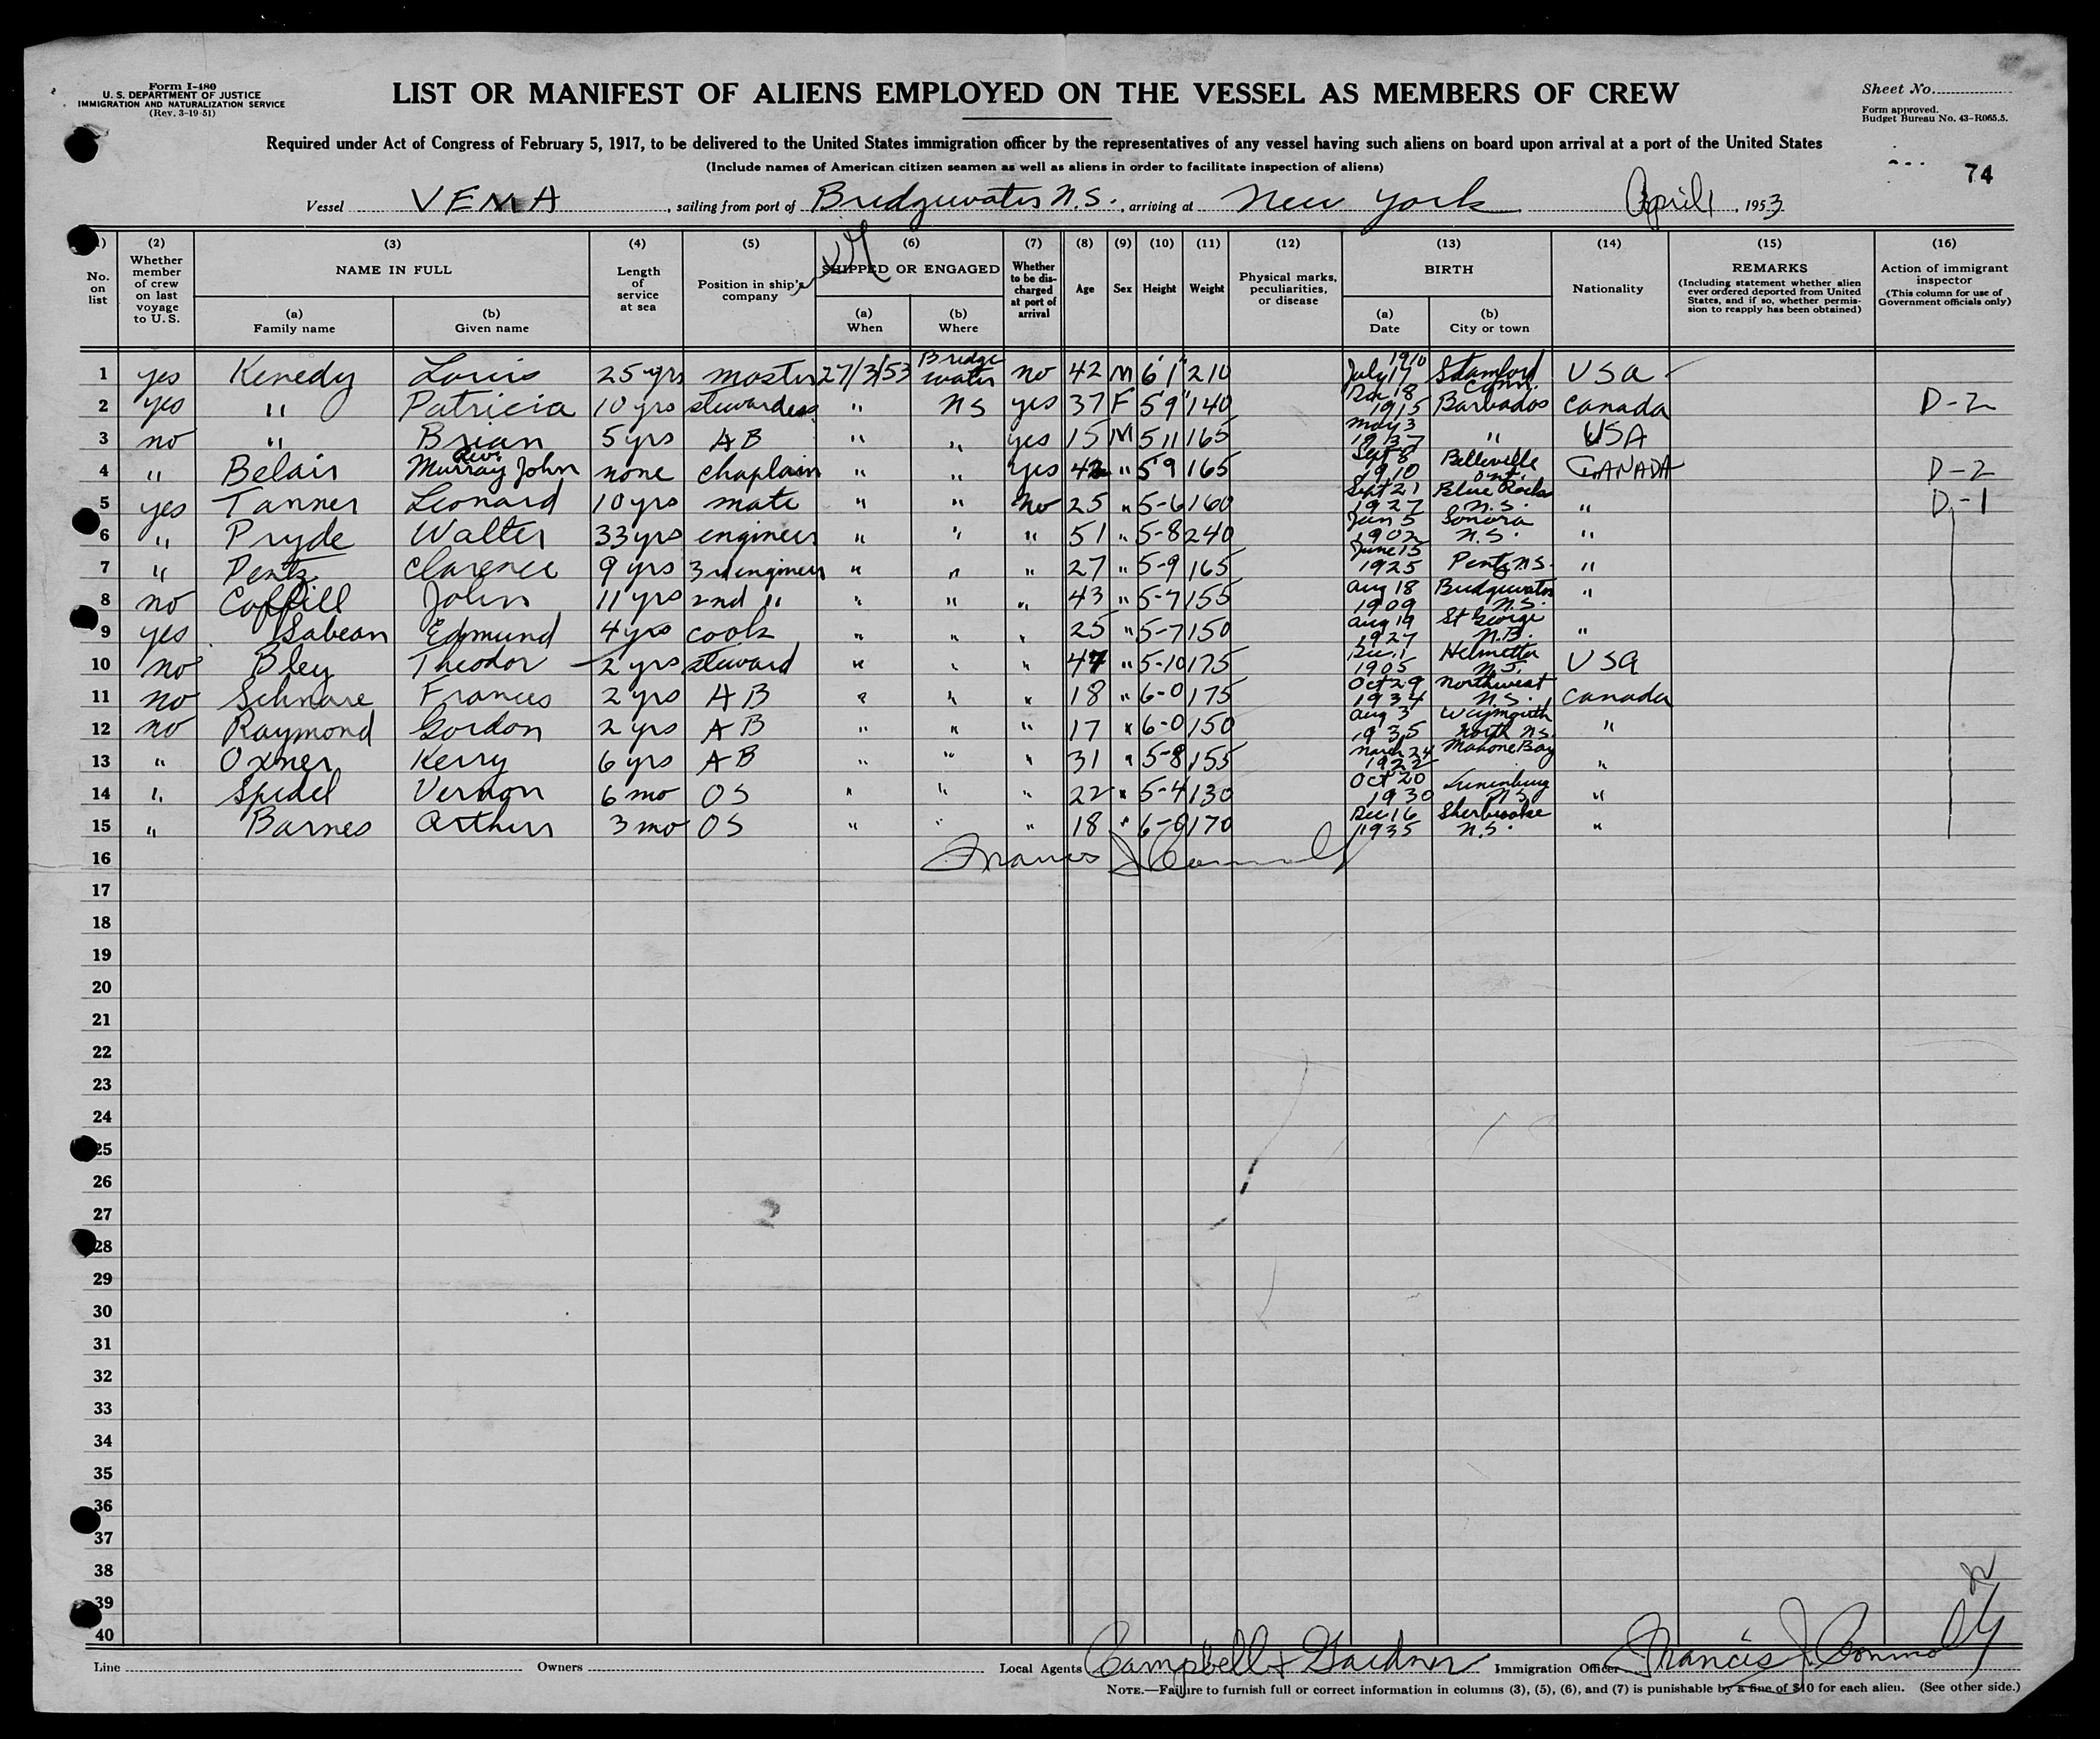 Form I-480
U. S. DEPARTMENT OF JUSTICE
IMMIGRATION AND NATURALIZATION SERVICE
(Rev. 3-19-51)
LIST OR MANIFEST OF ALIENS EMPLOYED ON THE VESSEL AS MEMBERS OF CREW
Sheet No.
Form approved.
Budget Bureau No. 43-R065.5.
Required under Act of Congress of February 5, 1917, to be delivered to the United States immigration officer by the representatives of any vessel having such aliens on board upon arrival at a port of the United States
(Include names of American citizen seamen as well as aliens in order to facilitate inspection of aliens)
74
Vessel VEMA, sailing from port of Bridgewater N.S., arriving at New York April 1, 1953
(1) No. on list
(2) Whether member of crew on last voyage to U. S.
(3) NAME IN FULL (a) Family name (b) Given name
(4) Length of service at sea
(5) Position in ship's company
(6) SHIPPED OR ENGAGED (a) When (b) Where
(7) Whether to be discharged at port of arrival
(8) Age
(9) Sex
(10) Height
(11) Weight
(12) Physical marks, peculiarities, or disease
(13) BIRTH (a) Date (b) City or town
(14) Nationality
(15) REMARKS (Including statement whether alien ever ordered deported from United States, and if so, whether permission to reapply has been obtained)
(16) Action of immigrant inspector (This column for use of Government officials only)
1 yes Kenedy Louis 25 yrs master 27/3/53 Bridgewater no 42 M 6'1" 210 July 17 1910 Stamford Conn. USA
2 yes " Patricia 10 yrs stewardess " NS yes 37 F 5'9" 140 Dec 18 1915 Barbados Canada D-2
3 no " Brian 5 yrs AB " " yes 15 M 5 11 165 May 3 1937 " USA
4 " Belair Rev. Murray John none chaplain " " yes 42 " 5 9 165 Sept 8 1910 Belleville Ont. CANADA D-2
5 yes Tanner Leonard 10 yrs mate " " No 25 " 5-6 160 Sept 21 1927 Blue Rocks N.S. " D-1
6 " Pryde Walter 33 yrs engineer " " " 51 " 5-8 240 Jan 5 1902 Sonora N.S. "
7 " Pentz Clarence 9 yrs 3rd engineer " " " 27 " 5-9 165 June 15 1925 Pentz N.S. "
8 no Coffill John 11 yrs 2nd " " " " 43 " 5-7 155 Aug 18 1909 Bridgewater N.S. "
9 yes Sabean Edmund 4 yrs cook " " " 25 " 5-7 150 Aug 19 1927 St George N.B. "
10 no Bley Theodor 2 yrs steward " " " 47 " 5-10 175 Dec. 1 1905 Helmetta N.J. USA
11 no Schnare Frances 2 yrs AB " " " 18 " 6-0 175 Oct 29 1934 Northwest N.S. Canada
12 no Raymond Gordon 2 yrs AB " " " 17 " 6-0 150 Aug 3 1935 Weymouth North N.S. "
13 " Oxner Kerry 6 yrs AB " " " 31 " 5-8 155 March 24 1922 Mahone Bay "
14 " Spidel Vernon 6 mo OS " " " 22 " 5-4 130 Oct 20 1930 Lunenburg N.S. "
15 " Barnes Arthur 3 mo OS " " " 18 " 6-0 170 Dec 16 1935 Sherbrooke N.S. "
16 Francis J Connolly
17
18
19
20
21
22
23
24
25
26
27
28
29
30
31
32
33
34
35
36
37
38
39
40
Line Owners Local Agents Campbell & Gardner Immigration Officer Francis J. Connolly
NOTE.—Failure to furnish full or correct information in columns (3), (5), (6), and (7) is punishable by a fine of $10 for each alien. (See other side.)